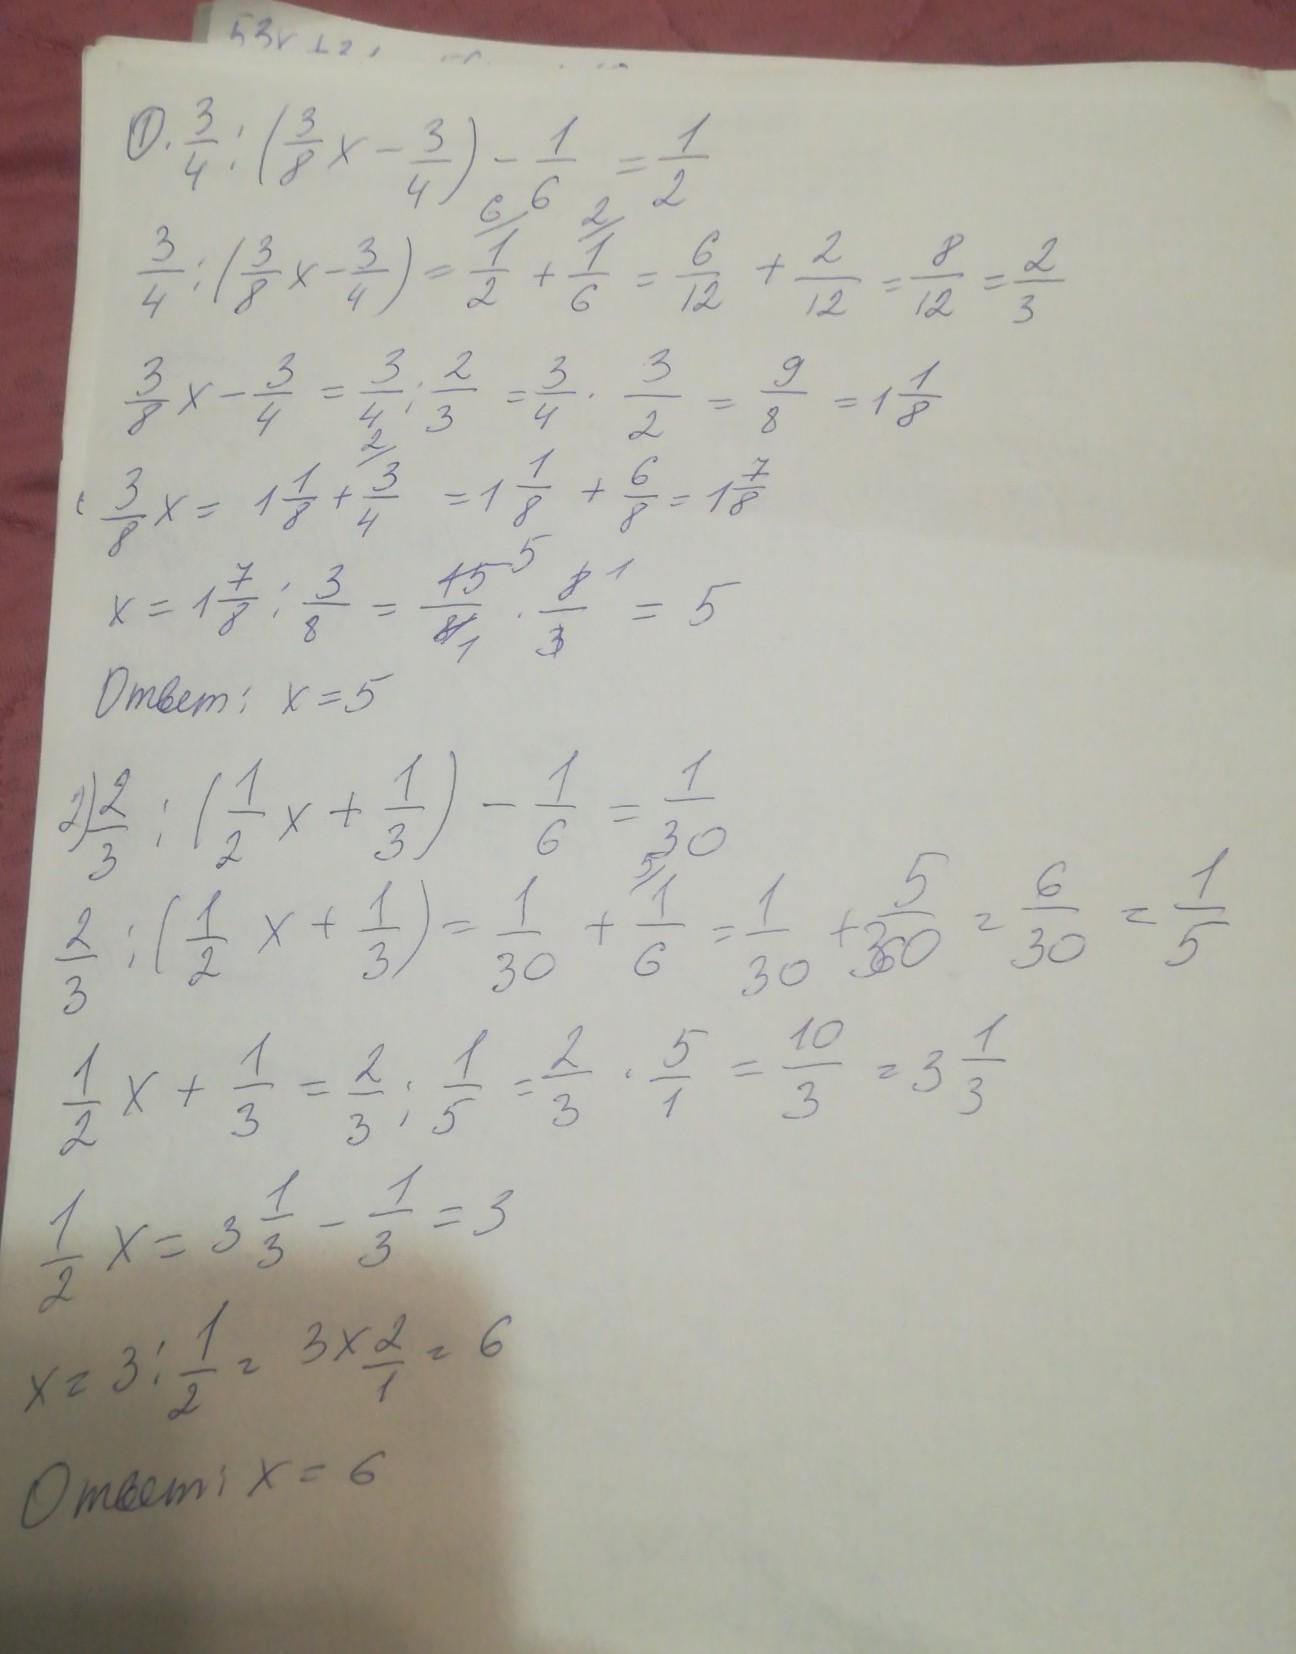 ①. 3/4 : (3/8 x - 3/4) - 1/6 = 1/2
3/4 : (3/8 x - 3/4) = 6/ 1/2 + 2/ 1/6 = 6/12 + 2/12 = 8/12 = 2/3
3/8 x - 3/4 = 3/4 : 2/3 = 3/4 · 3/2 = 9/8 = 1 1/8
3/8 x = 1 1/8 + 2/ 3/4 = 1 1/8 + 6/8 = 1 7/8
x = 1 7/8 : 3/8 = 15 5/8 1 · 8 1/3 = 5
Ответ: x = 5
2) 2/3 : (1/2 x + 1/3) - 1/6 = 1/30
2/3 : (1/2 x + 1/3) = 1/30 + 5/ 1/6 = 1/30 + 5/30 = 6/30 = 1/5
1/2 x + 1/3 = 2/3 : 1/5 = 2/3 · 5/1 = 10/3 = 3 1/3
1/2 x = 3 1/3 - 1/3 = 3
x = 3 : 1/2 = 3 x 2/1 = 6
Ответ: x = 6